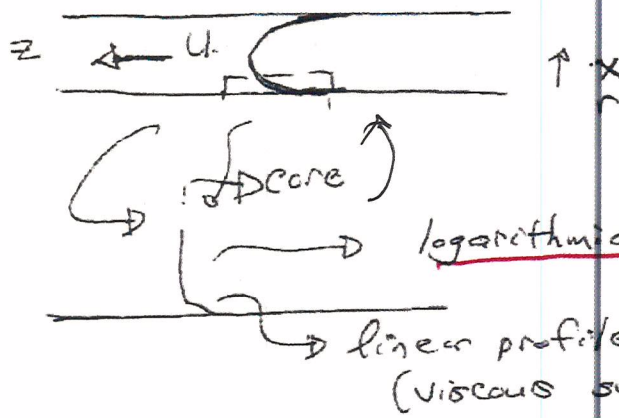 z u.
x
r
core
logarithmic
linear profile
(viscous su